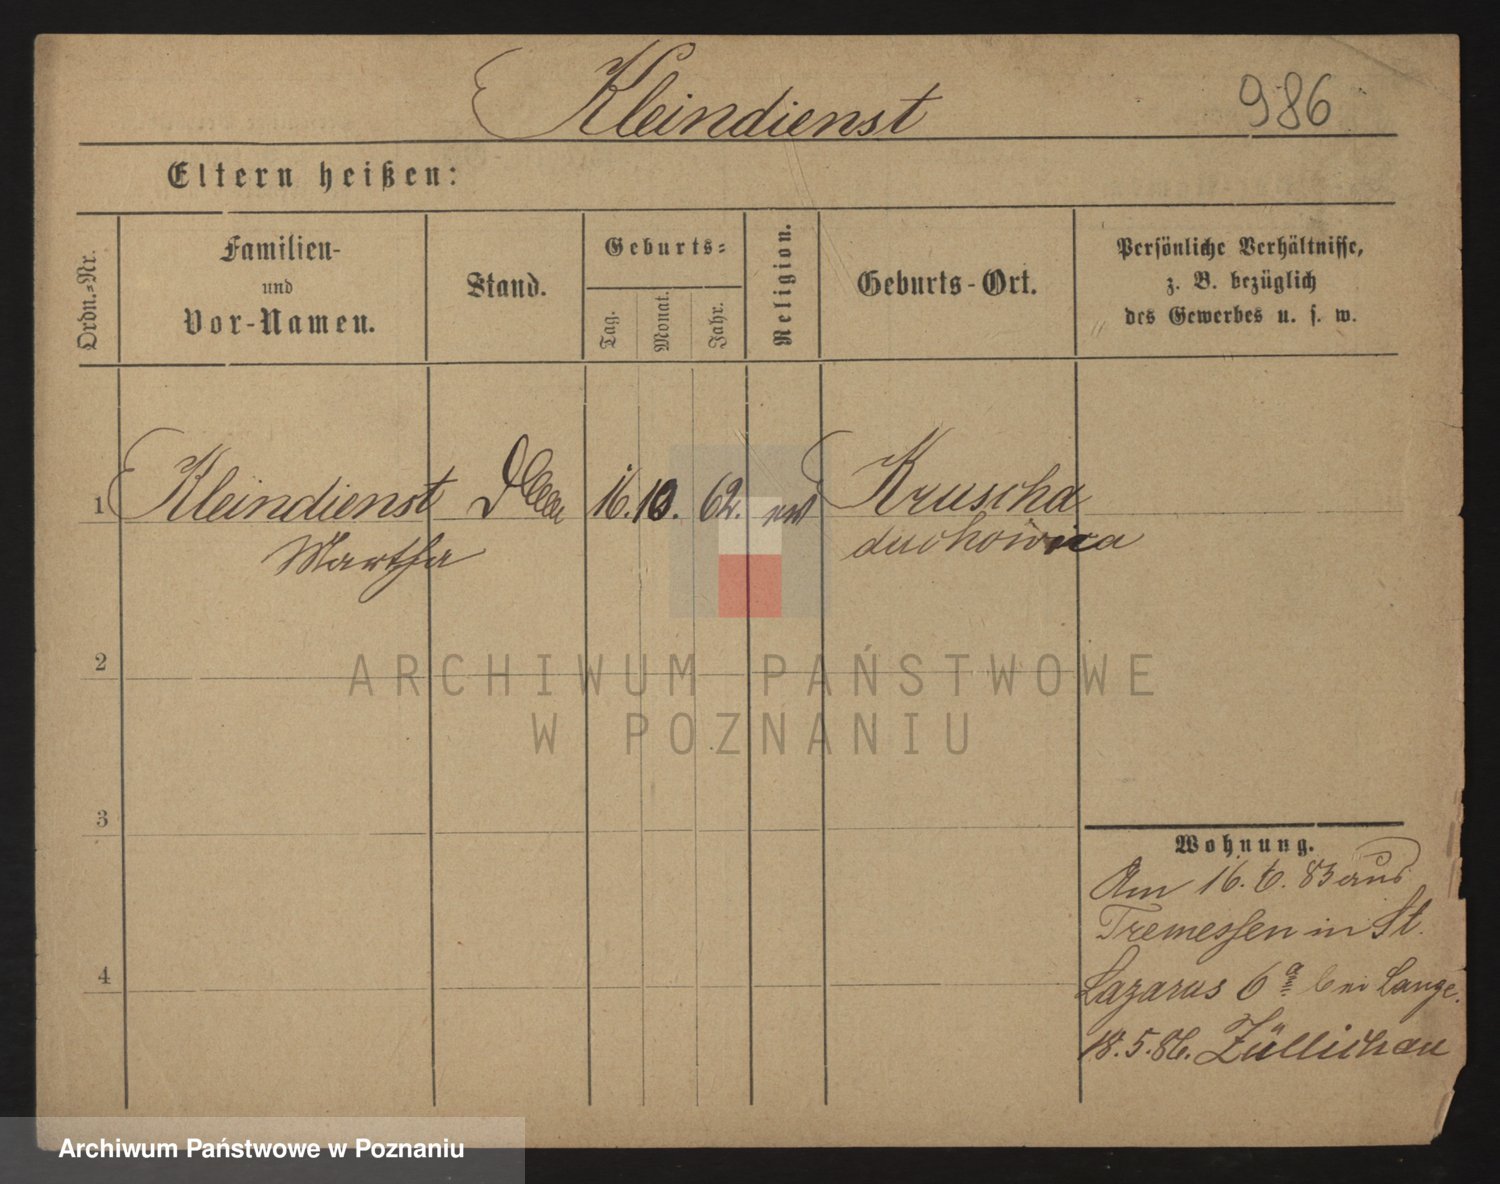 Kleindienst
986
Eltern heißen:
Ordn.-Nr.
Familien-
und
Vor-Namen.
Stand.
Geburts-
Tag.
Monat.
Jahr.
Religion.
Geburts-Ort.
Persönliche Verhältnisse,
z. B. bezüglich
des Gewerbes u. s. w.
1 Kleindienst 16. 10. 62. Kruscha
Martha duchowna
2
ARCHIWUM PAŃSTWOWE
W POZNANIU
3
4
Wohnung.
Am 16. 6. 83 aus
Tremessen in St.
Lazarus 6a bei Lange.
18. 5. 86. Züllichau
Archiwum Państwowe w Poznaniu